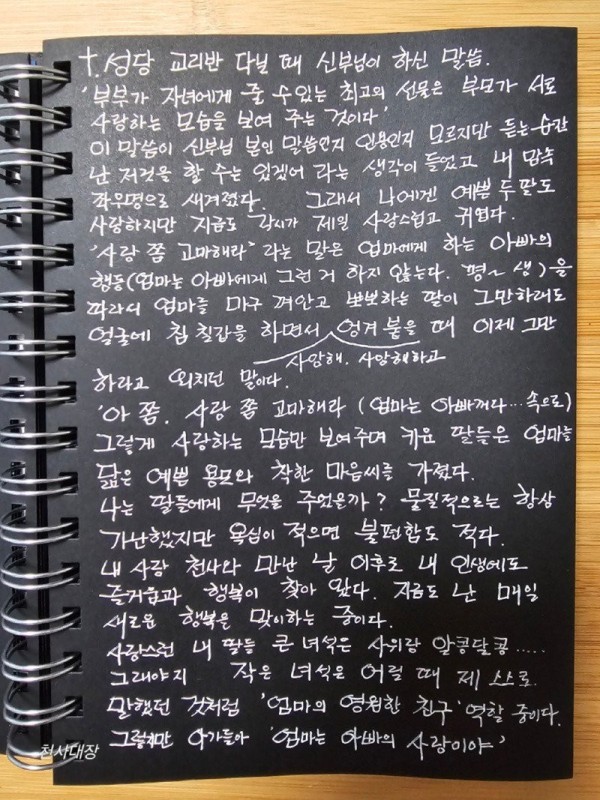 †. 성당 교리반 다닐 때 신부님이 하신 말씀.
'부부가 자녀에게 줄 수 있는 최고의 선물은 부모가 서로
사랑하는 모습을 보여 주는 것이다'
이 말씀이 신부님 본인 말씀인지 인용인지 모르지만 듣는 순간
난 저것을 할 수는 있겠어 라는 생각이 들었고 내 맘속
좌우명으로 새겨졌다. 그래서 나에겐 예쁜 두 딸도
사랑하지만 지금도 각시가 제일 사랑스럽고 귀엽다.
'사랑 쫌 고마해라' 라는 말은 엄마에게 하는 아빠의
행동(엄마는 아빠에게 그런 거 하지 않는다. 평~생)을
따라서 엄마를 마구 껴안고 뽀뽀하는 딸이 그만하래도
얼굴에 침 칠갑을 하면서 엉겨 붙을 때 이제 그만
사랑해. 사랑해하고
하라고 외치던 말이다.
'아 쫌. 사랑 쫌 고마해라 (엄마는 아빠꺼라...속으로)
그렇게 사랑하는 모습만 보여주며 키운 딸들은 엄마를
닮은 예쁜 용모와 착한 마음씨를 가졌다.
나는 딸들에게 무엇을 주었을까? 물질적으로는 항상
가난했지만 욕심이 적으면 불편함도 적다.
내 사랑 천사와 만난 날 이후로 내 인생에도
즐거움과 행복이 찾아 왔다. 지금도 난 매일
새로운 행복을 맞이하는 중이다.
사랑스런 내 딸들 큰 녀석은 사위랑 알콩달콩.....
그래야지 작은 녀석은 어릴 때 제 스스로
말했던 것처럼 '엄마의 영원한 친구' 역할 중이다.
그렇지만 아가들아 '엄마는 아빠의 사랑이야'
천사대장